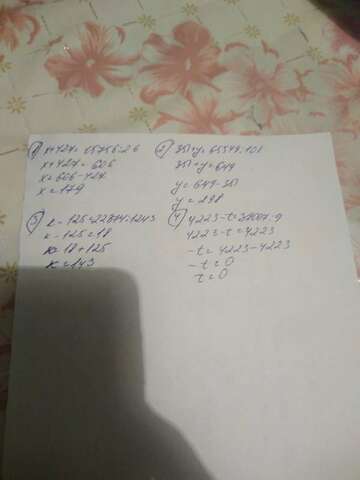 1) x+424=15756:26
x+424=606
x=606-424
x=179
2) 351+y=65549:101
351+y=649
y=649-351
y=298
3) к-125=22374:1243
к-125=18
к=18+125
к=143
4) 4223-t=38007:9
4223-t=4223
-t=4223-4223
-t=0
t=0